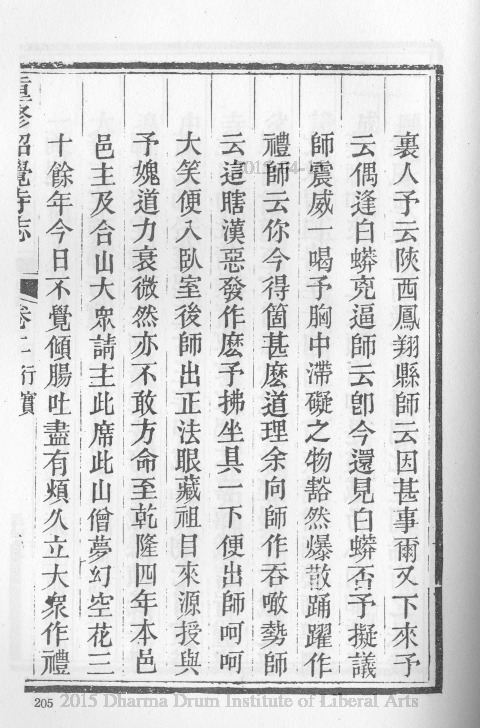 裏人予云陝西鳳翔縣師云因甚事爾又下來予
云偶逢白蟒兇逼師云卽今還見白蟒否予擬議
師震威一喝予胸中滯礙之物豁然爆散踊躍作
禮師云你今得箇甚麽道理余向師作吞噉勢師
云這瞎漢惡發作麽予拂坐具一下便出師呵呵
大笑便入臥室後師出正法眼藏祖目來源授與
予媿道力衰微然亦不敢方命至乾隆四年本邑
邑主及合山大衆請主此席此山僧夢幻空花三
十餘年今日不覺傾腸吐盡有煩久立大衆作禮
重修昭覺寺志
卷二行實
205 2015 Dharma Drum Institute of Liberal Arts